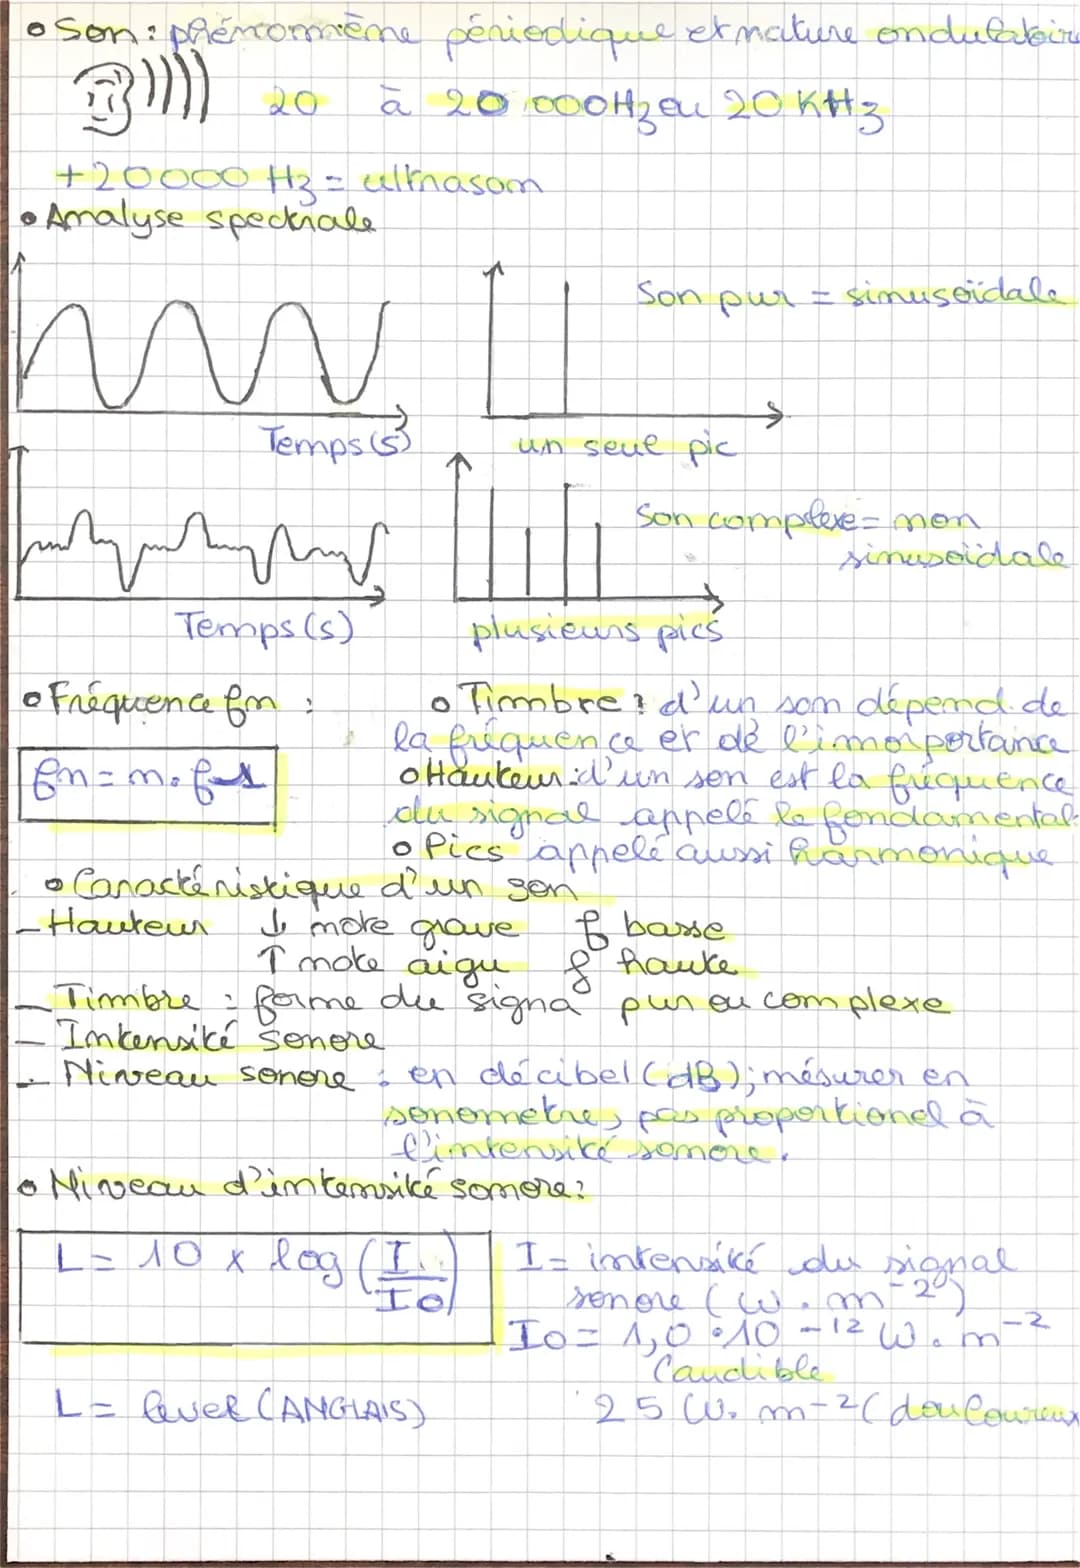 • Son : phénomième périodique et nature ondulatoire
20 à 20 000Hz ou 20 KHz
+20000 Hz = ultrason
• Analyse spectrale
Son pur = sinusoïdale
Temps (s)
un seul pic
Son complexe = non
sinusoïdale
Temps (s)
plusieurs pics
• Fréquence fn :
fn = n . f1
• Timbre : d'un son dépend de
la fréquence et de l'imorportance
• Hauteur : d'un son est la fréquence
du signal appelé le fondamental.
• Pics appelé aussi harmonique
• Caractéristique d'un son
- Hauteur ↓ note grave f basse
↑ note aigu f haute
- Timbre : forme du signa pur ou complexe
- Intensité sonore
- Niveau sonore : en décibel (dB) ; mésurer en
sonometre, pas proportionel à
l'intensité sonore.
• Niveau d'intensité sonore :
L = 10 x log (I/I0)
I = intensité du signal
sonore (W . m-2)
I0 = 1,0 . 10 -12 W . m-2
(audible
L = level (ANGLAIS)
25 W. m-2 (douloureux